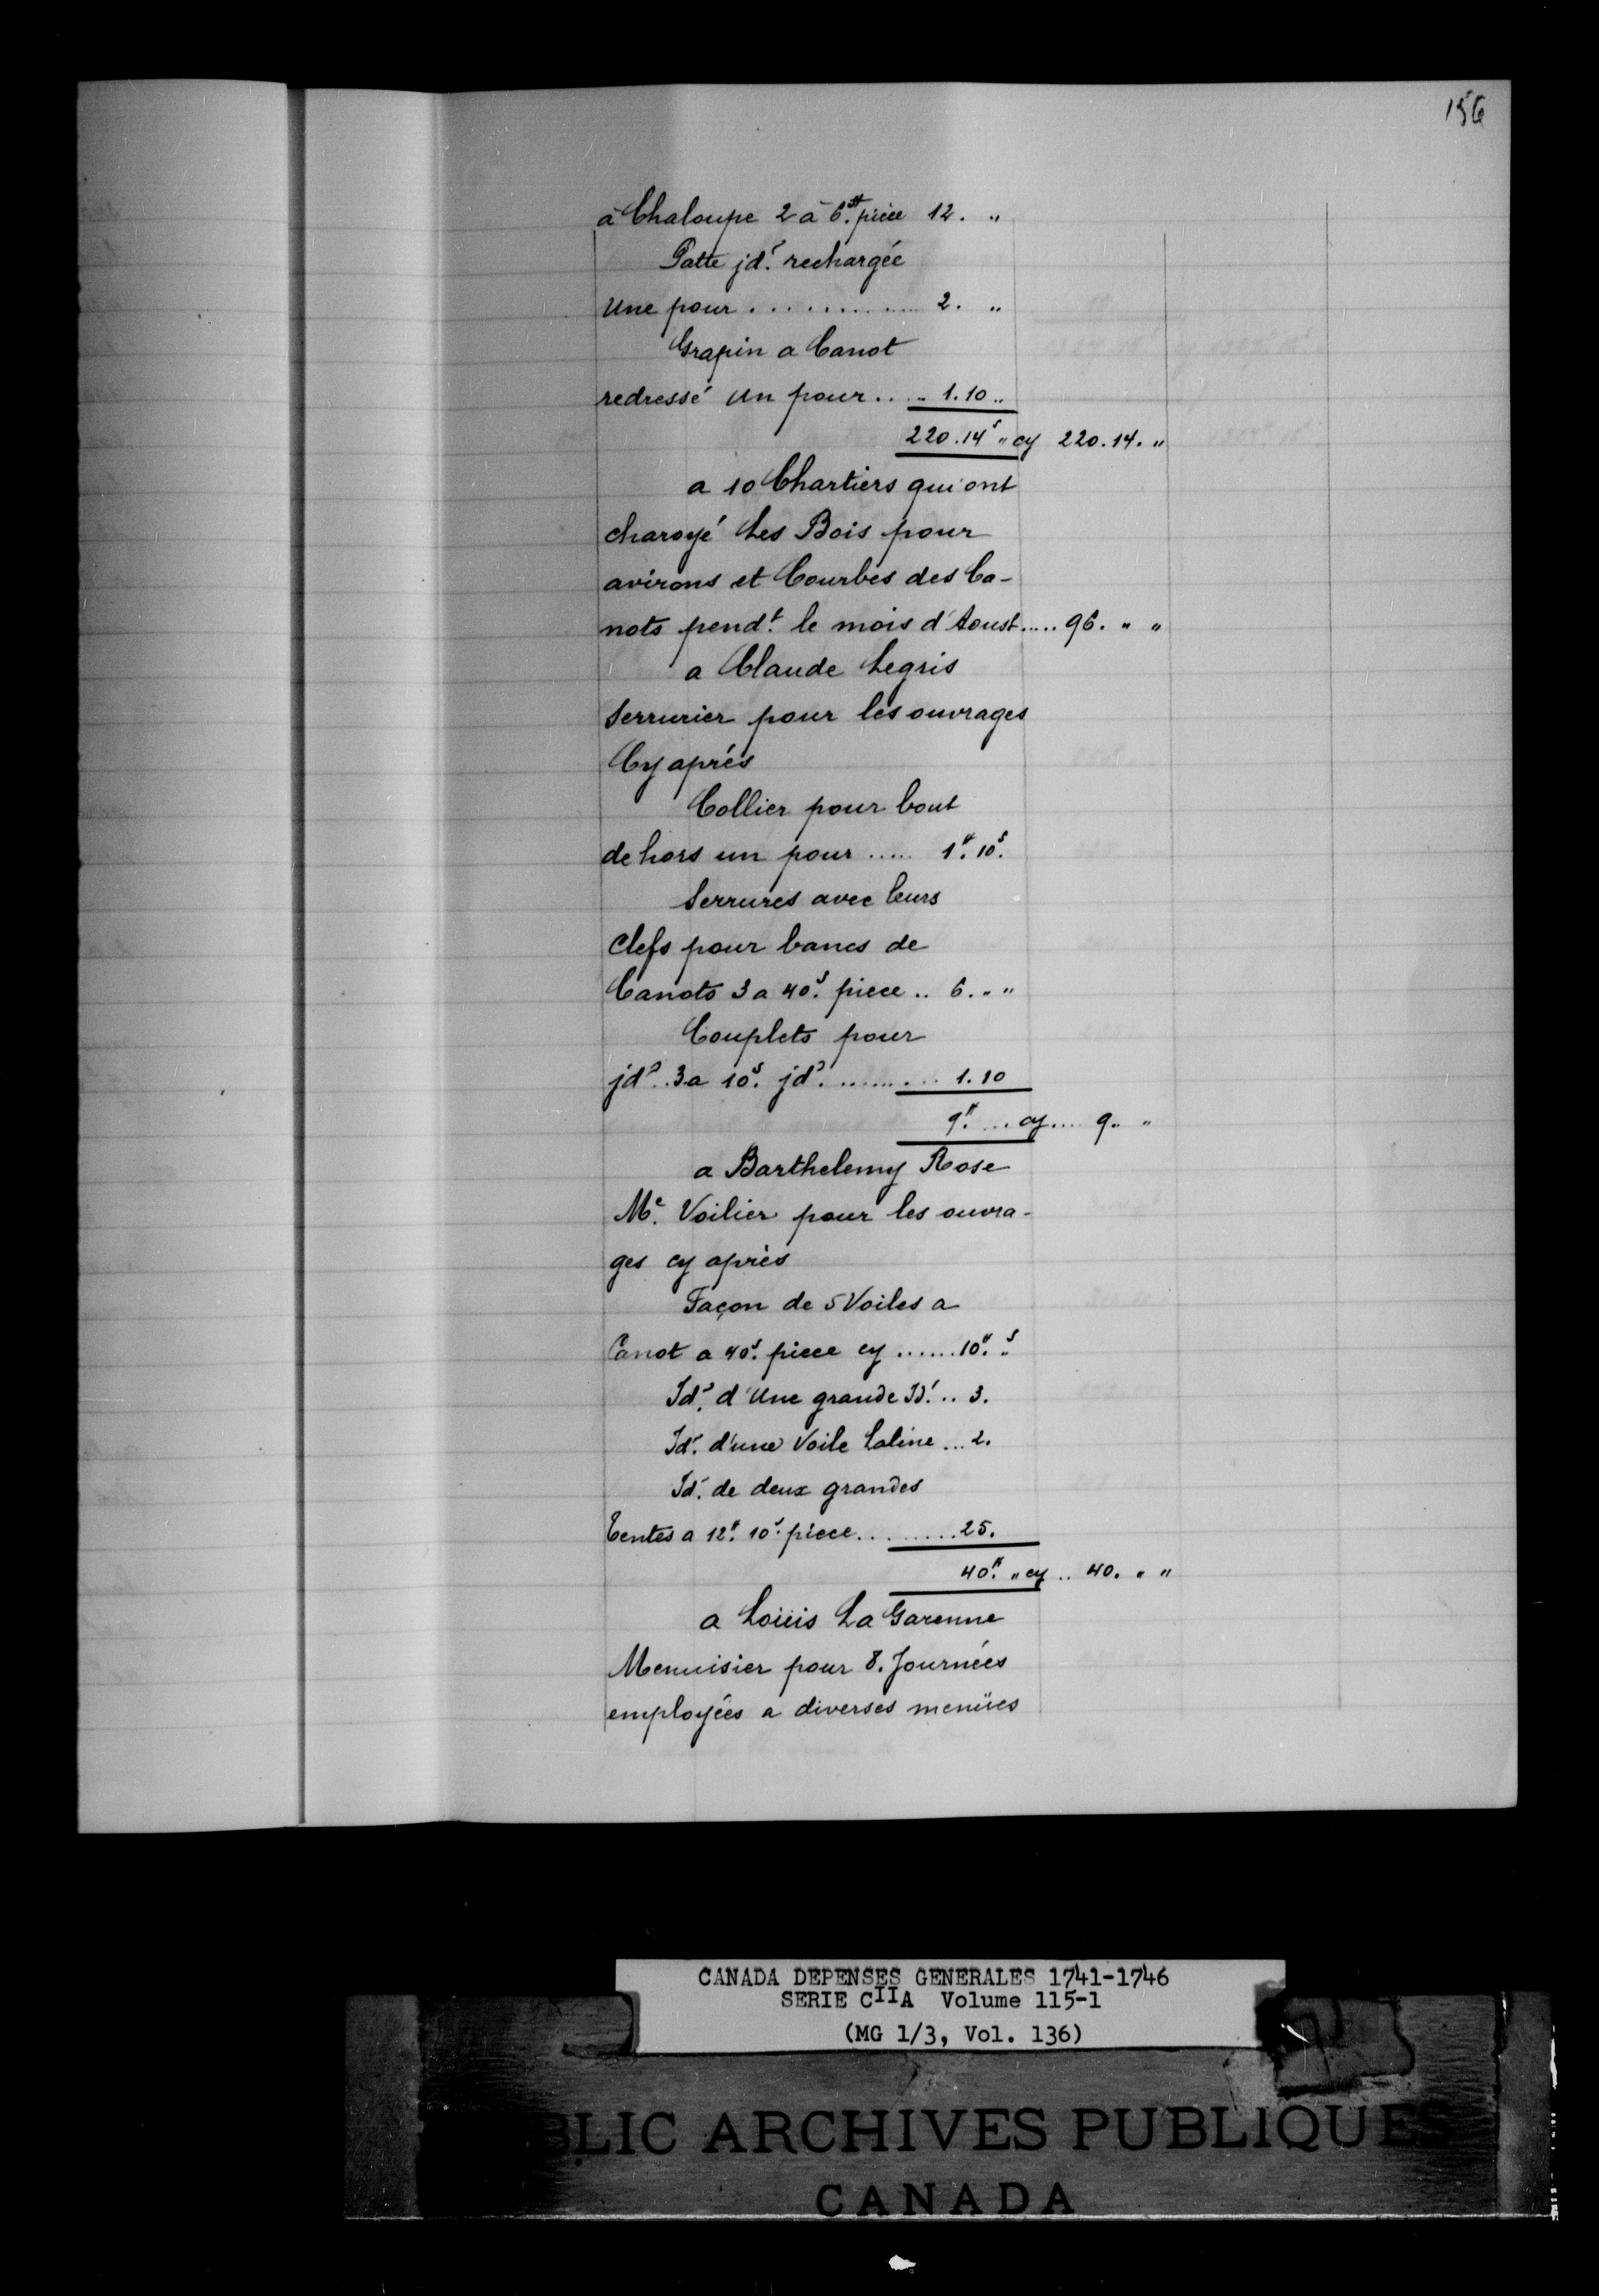 156
à Chaloupe 2 à 6.tt pièce 12. "
Patte jd.t rechargée
Une pour .............. 2. "
Grapin a Canot
redressé Un pour .... 1.10 ..
220.14s " cy 220.14. "
a 10 Chartiers qui ont
charoyé Les Bois pour
avirons et Courbes des Ca-
nots pend.t le mois d'Aoust ..... 96. " "
a Claude Legris
Serrurier pour les ouvrages
Cy aprés
Collier pour bout
dehors un pour ..... 1.tt 10.s
Serrures avec leurs
Clefs pour bancs de
Canots 3 a 40.s piece .. 6. " "
Couplets pour
jd.s 3 a 10.s jd.s ......... 1.10
9.tt ... cy .... 9. "
a Barthelemy Rose
M.e Voilier pour les ouvra-
ges cy après
Façon de 5 Voiles a
Canot a 40.s piece cy ...... 10.tt "s
Id.s d'Une grande Id.t .. 3.
Id.t d'une Voile Latine ... 2.
Id.t de deux grandes
Tentes a 12.tt 10.s pièce ......... 25.
40.tt " cy .. 40. " "
a Loüis La Garenne
Menuisier pour 8. Journées
employées a diverses menües
CANADA DEPENSES GENERALES 1741-1746
SERIE CIIA Volume 115-1
(MG 1/3, Vol. 136)
BLIC ARCHIVES PUBLIQUES
CANADA